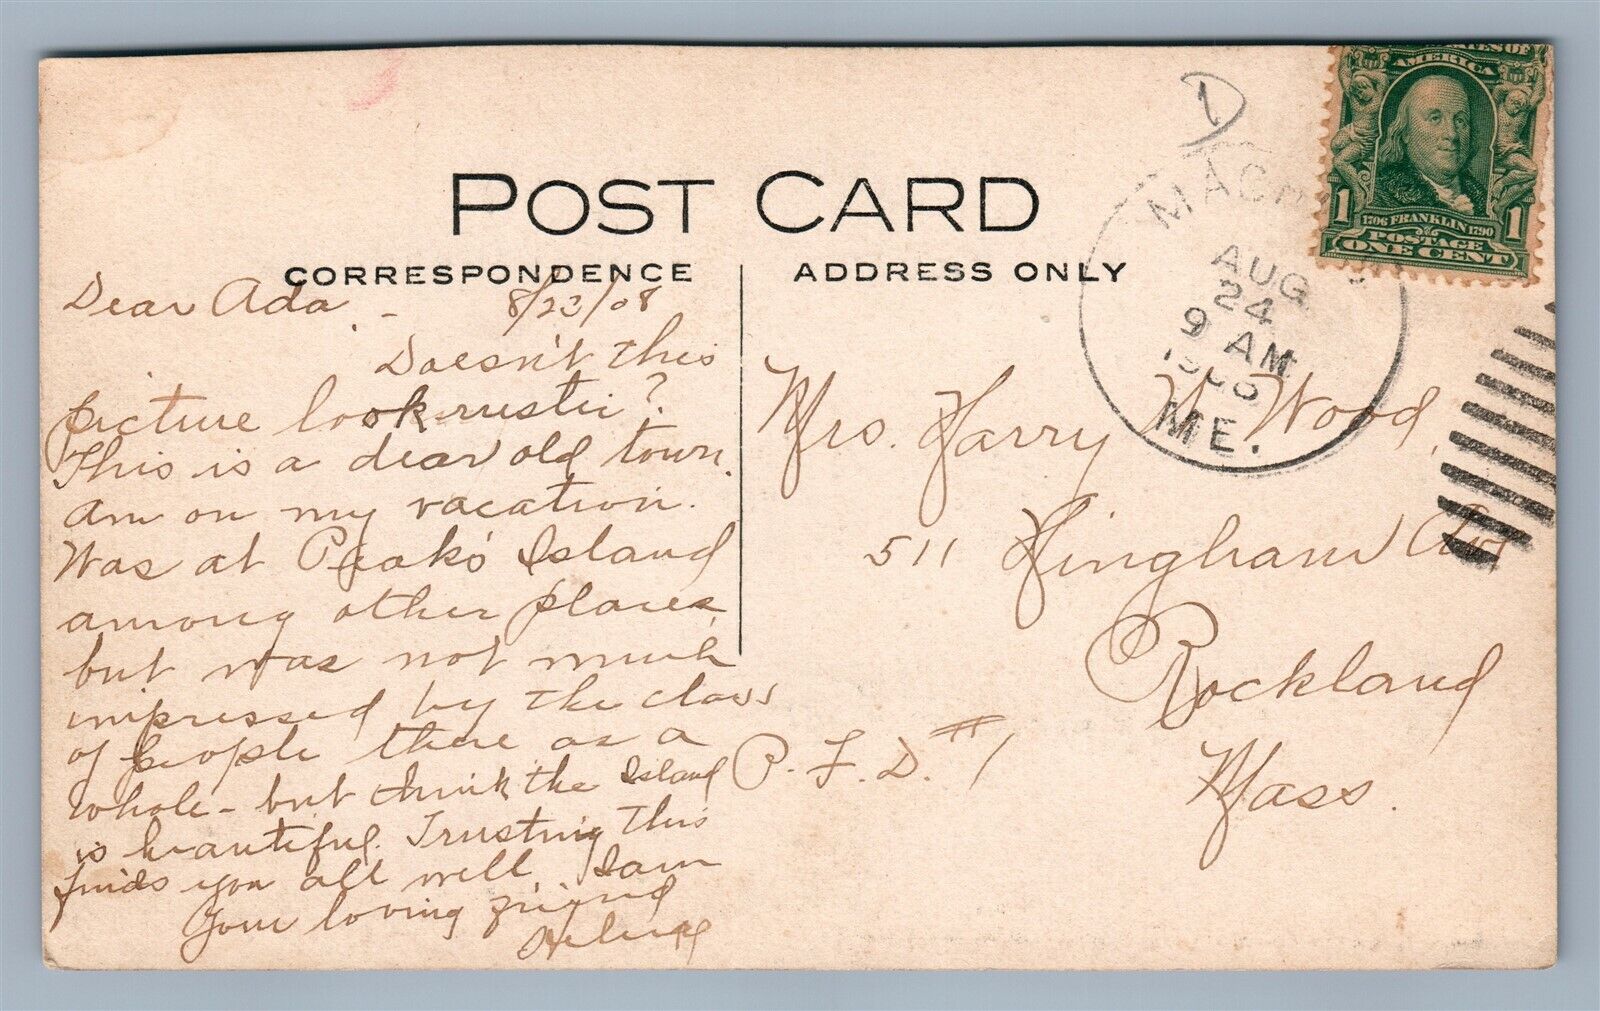 POST CARD
CORRESPONDENCE
ADDRESS ONLY
Dear Ada. - 8/23/08
Doesn't this
picture look rustic?
This is a dear old town.
Am on my vacation.
Was at Peak's Island
among other places,
but was not much
impressed by the class
of people there as a
whole - but think the Island
is beautiful. Trusting this
finds you all well I am
Your loving friend
Mrs. Harry W. Wood,
511 Hingham Ave
Rockland
Mass.
R. F. D. #1
AUG
24
9 AM
1908
ME.
AMERICA
1 1706 FRANKLIN 1790 1
POSTAGE
ONE CENT